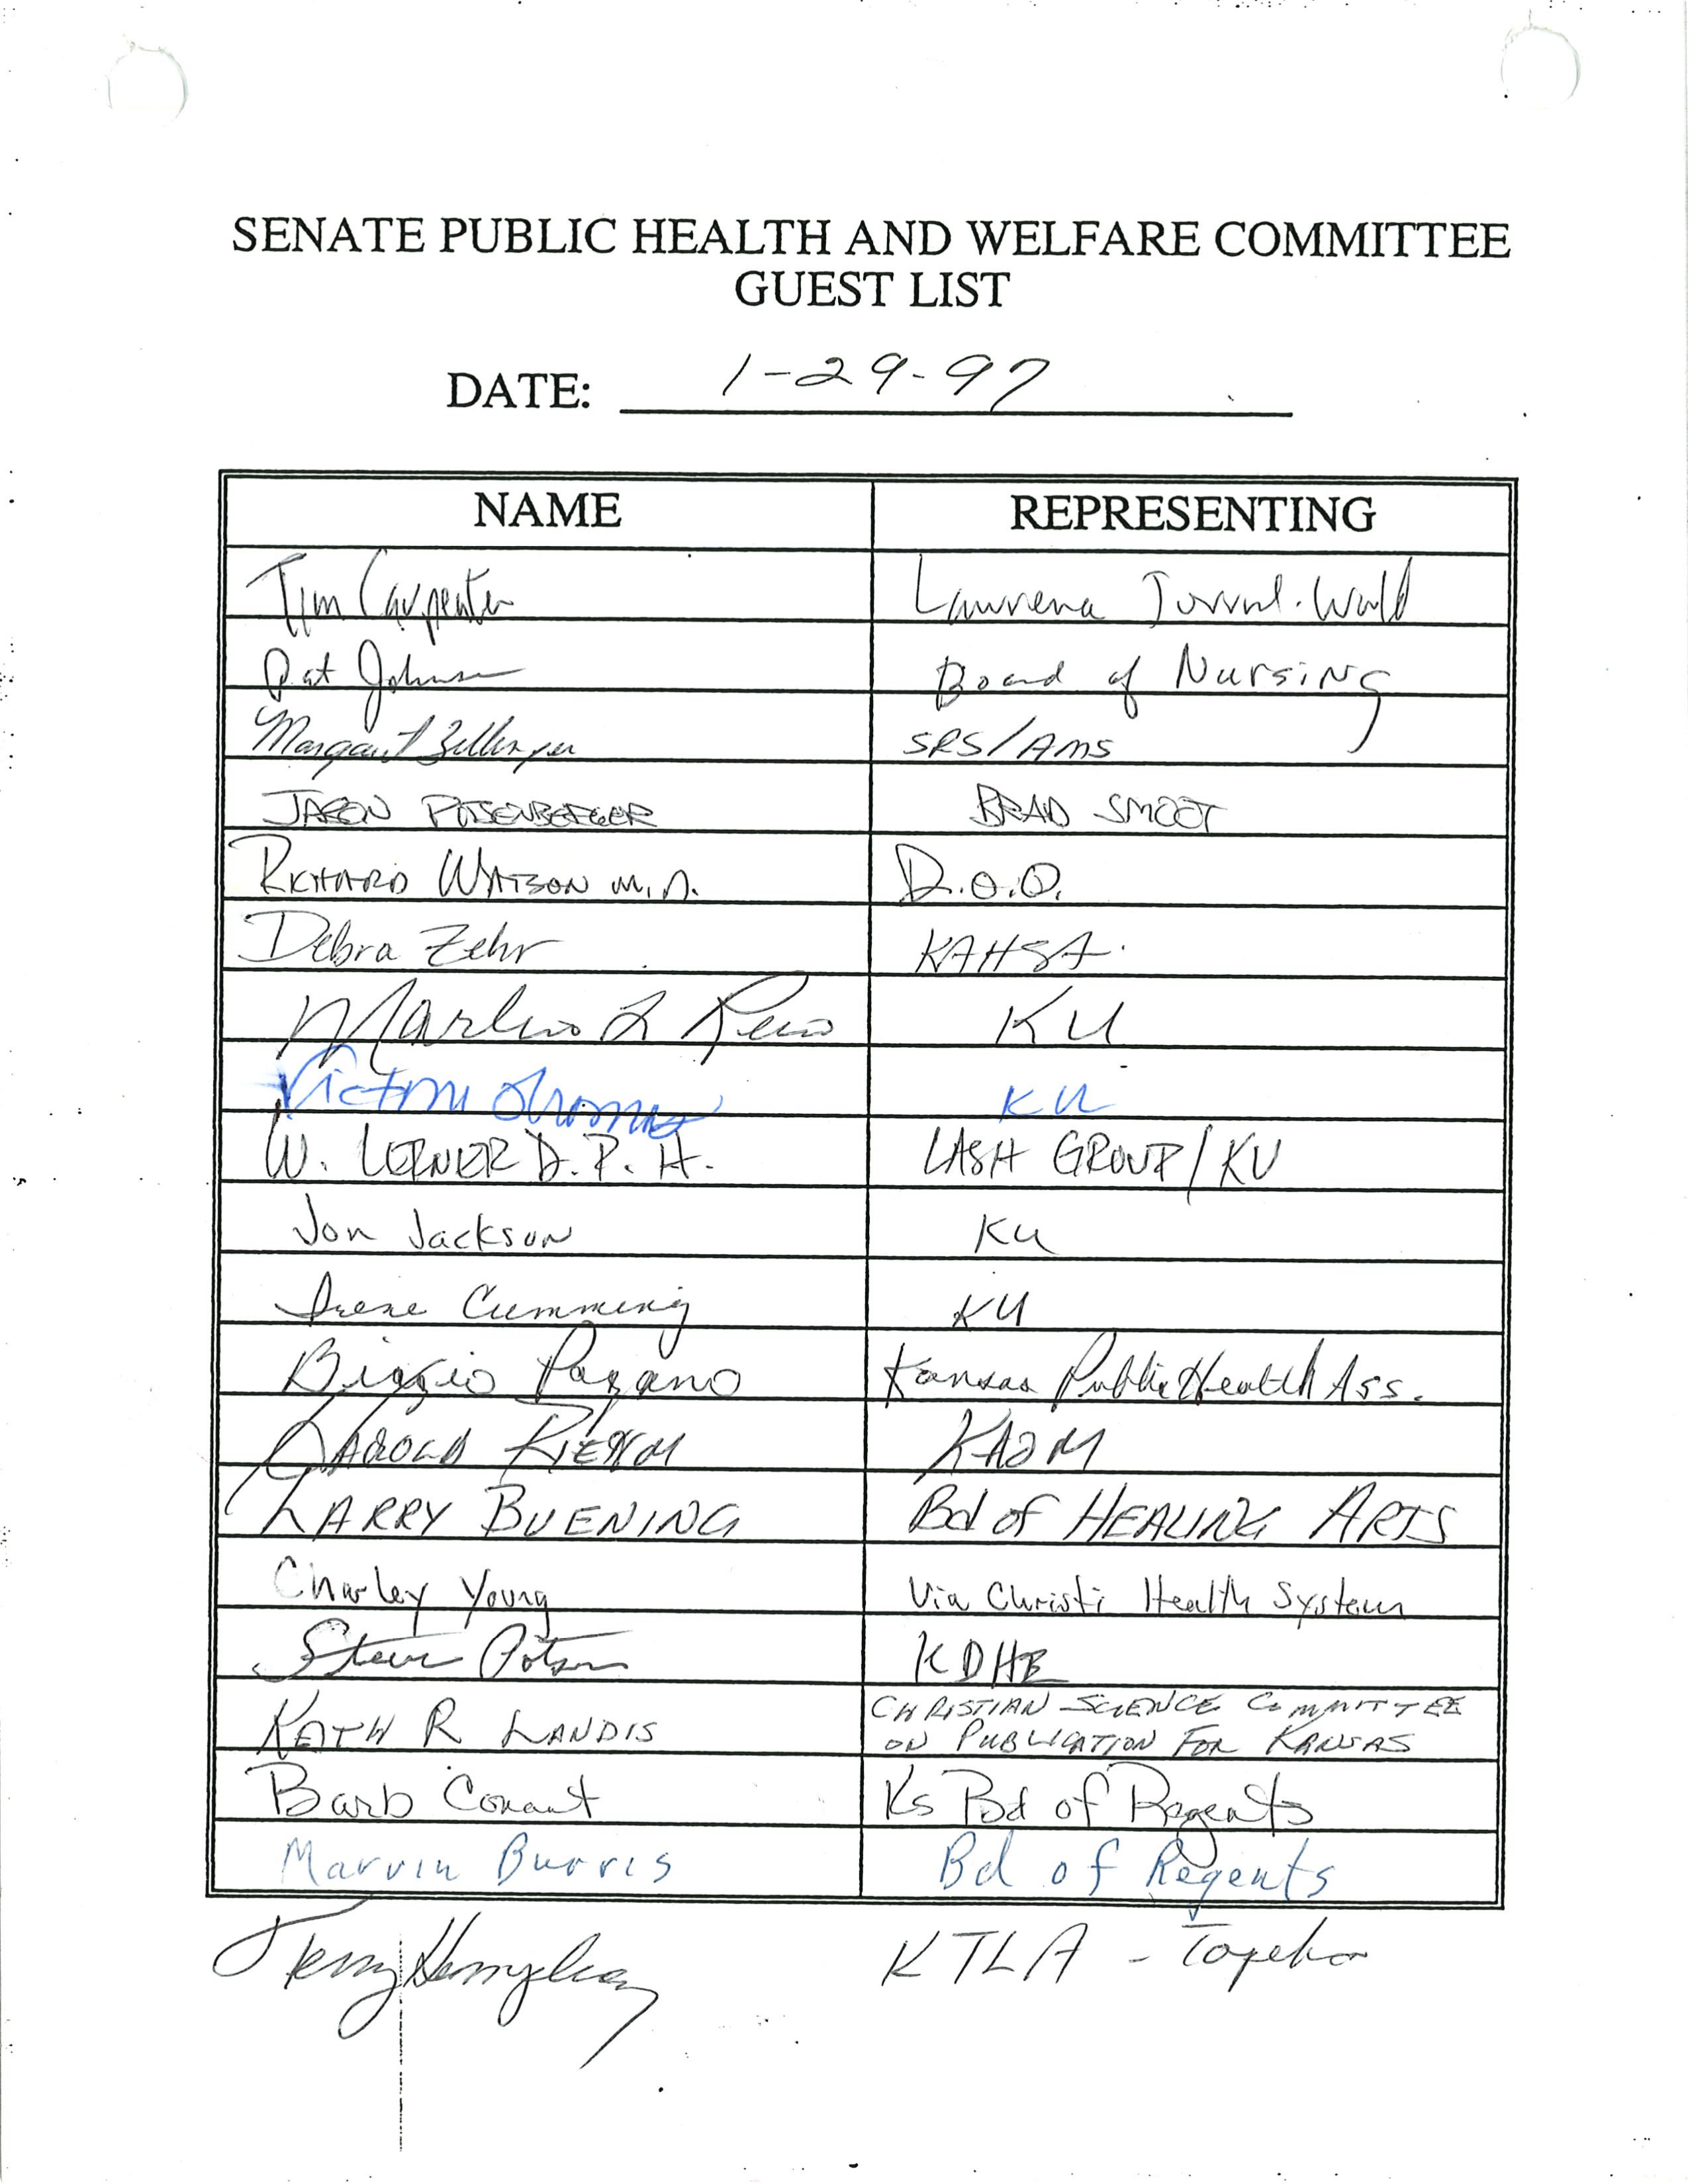 SENATE PUBLIC HEALTH AND WELFARE COMMITTEE
GUEST LIST
DATE: 1-29-97
NAME REPRESENTING
Tim Carpenter Lawrence Journal-World
Pat Johnson Board of Nursing
Margaret Zillinger SRS/AMS
JASON PITSENBERGER BRAD SMOOT
RICHARD WATSON M.D. D.O.O.
Debra Zehr KAHSA.
Marlin L Rein KU
KU
W. LERNER D.P.H. LASH GROUP/KU
Jon Jackson KU
Irene Cumming KU
Biagio Pagano Kansas Public Health Ass.
HAROLD RIEHM KAOM
LARRY BUENING Bd of HEALING ARTS
Charley Young Via Christi Health System
Steve KDHE
KEITH R LANDIS CHRISTIAN SCIENCE COMMITTEE
ON PUBLICATION FOR KANSAS
Barb Conant Ks Bd of Regents
Marvin Burris Bd of Regents
Terry Humphrey KTLA - Topeka